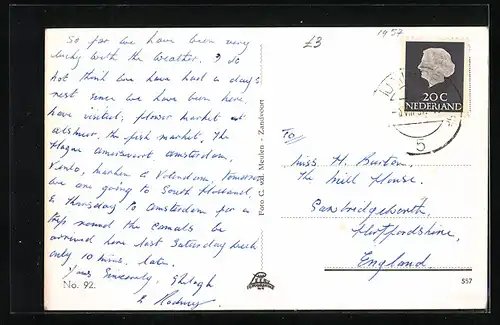 So far we have been very
lucky with the weather. I do
not think we have had a days
rest since we have been here.
have visited, flower market at
alsmeer, the fish market. The
Hague amersvoort amsterdam,
Marken & Volendam, tomorrow
we are going to South Holland,
& Thursday to Amsterdam for a
trip round the canals. We
arrived here last Saturday week
only 10 mins. late.
Yours Sincerely, Shelagh
& Rodney
No. 92.
Foto C. v.d. Meulen - Zandvoort
£3
1957
20C
NEDERLAND
5
To
Miss H. Burton.
The Mill House.
Sawbridgeworth,
Hertfordshire,
England.
557